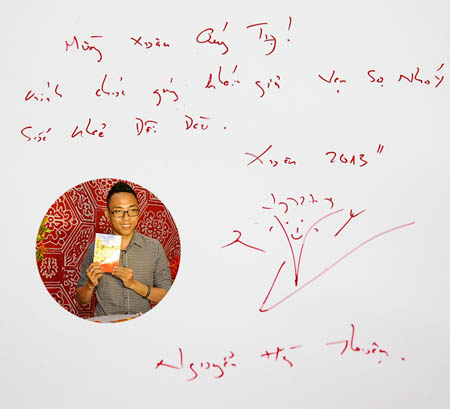 Mừng xuân Quý Tỵ!
Kính chúc quý khán giả Vạn Sự Như Ý
Sức khoẻ Dồi Dào.
Xuân 2013"
Nguyễn